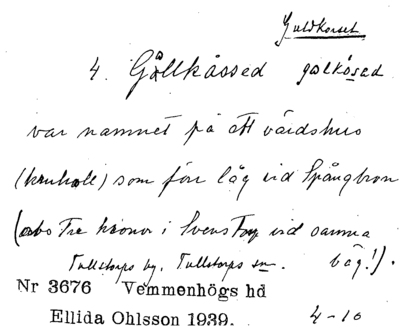 Guldkorset
4. Gållkåssed galkósed
var namnet på ett värdshus
(kruhåll) som förr låg vid Spångbron
(obs Tre kronor i Svenstorp vid samma
Tullstorps by. Tullstorps sn. väg!).
Nr 3676 Vemmenhögs hd
Ellida Ohlsson 1939. 4-10